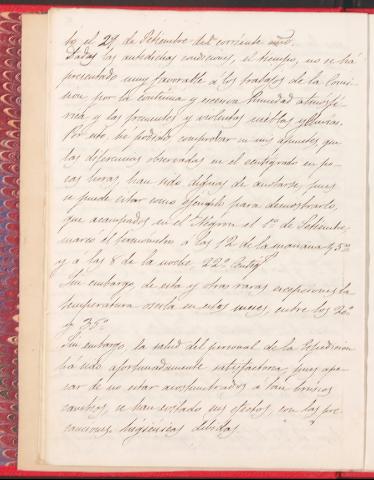 to el 29 de Setiembre del corriente año.
Dadas las antedichas condiciones, el tiempo, no se há
presentado muy favorable á los trabajos de la Comi
sion, por la contínua y excesiva humedad atmosfe
rica y las frecuentes y violentas nieblas y lluvias.
Por esto, hé podido comprobar en mis apuntes que
las diferencias observadas en el centígrado en po-
cas horas, han sido dignas de anotarse, pues
se puede citar como ejemplo para demostrarlo,
que acampados en el Negron el 1º de Setiembre,
marcó el termómetro á las 12 de la mañana 45º
y á las 8 de la noche, 22º Centigº
Sin embargo, de esta y otras raras excepciones la
temperatura oscila en estos meses, entre los 30º
y 35º
Sin embargo, la salud del personal de la Expedicion
há sido afortunadamente satisfactoria, pues apе
sar de no estar acostumbrados á tan bruscos
cambios, se han evitado sus efectos, con las pre
cauciones higiénicas debidas